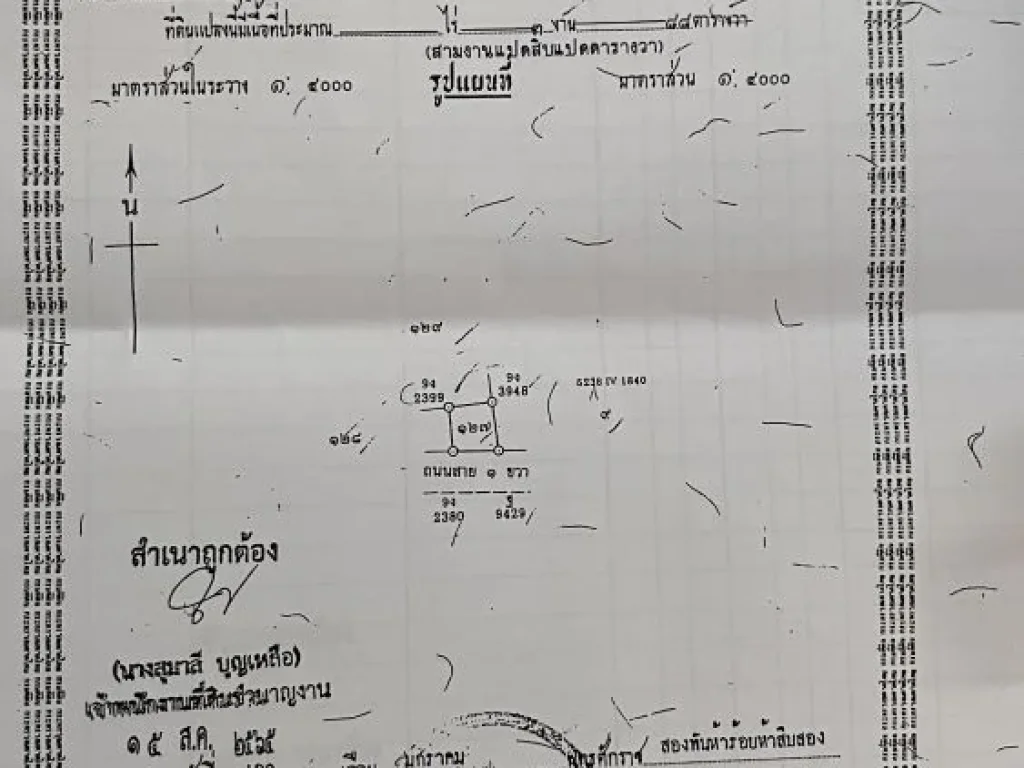 ที่ดินแปลงนี้มีเนื้อที่ประมาณ ไร่ ๓ งาน ๘๘ ตารางวา
(สามงานแปดสิบแปดตารางวา)
มาตราส่วนในระวาง ๑: ๔๐๐๐ รูปแผนที่ มาตราส่วน ๑: ๔๐๐๐
น
๑๒๙
9ง 2399
9ง 3948
5238 IV 1840
๙
๑๒๘
๑๒๗
ถนนสาย ๑ ขวา
9ง 2380
ฐ 9429
สำเนาถูกต้อง
(นางสุมาลี บุญเหลือ)
เจ้าพนักงานที่ดินชำนาญงาน
๑๕ ส.ค. ๒๕๖๕
เดือน มกราคม พุทธศักราช สองพันห้าร้อยห้าสิบสอง